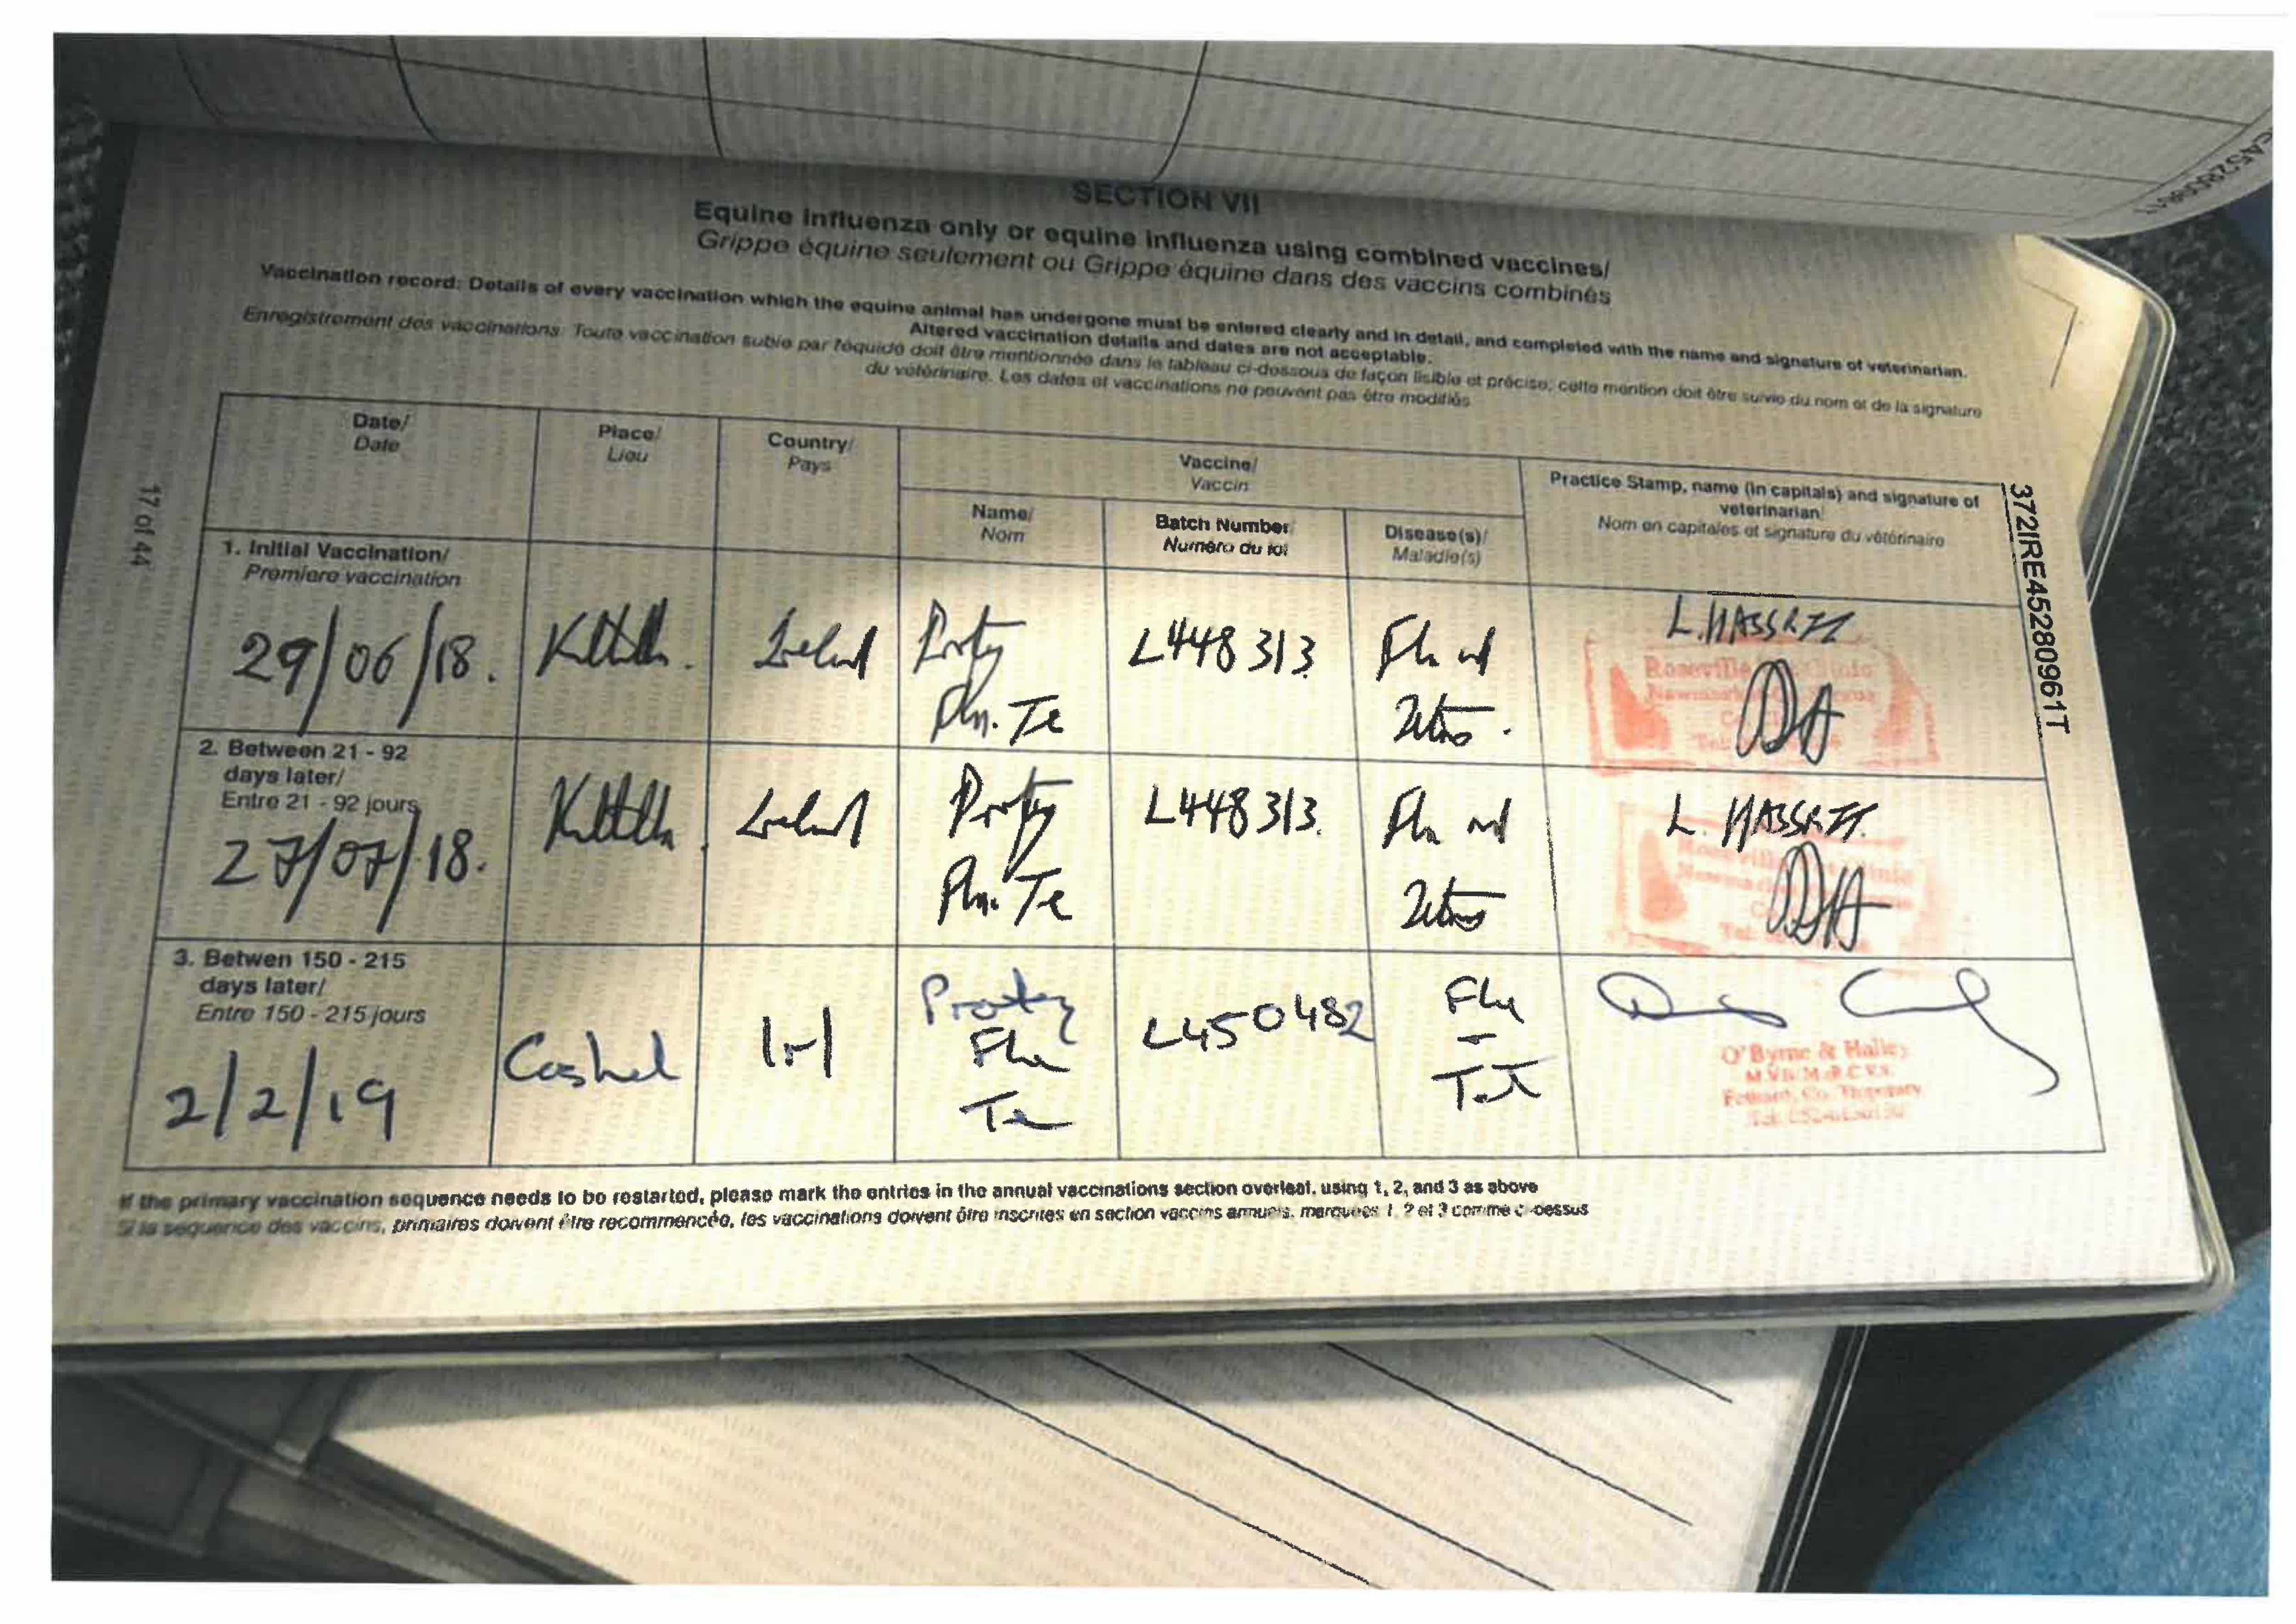 SECTION VII
Equine influenza only or equine influenza using combined vaccines/
Grippe équine seulement ou Grippe équine dans des vaccins combinés
Vaccination record: Details of every vaccination which the equine animal has undergone must be entered clearly and in detail, and completed with the name and signature of veterinarian.
Altered vaccination details and dates are not acceptable.
Enregistrement des vaccinations: Toute vaccination subie par l'équidé doit être mentionnée dans le tableau ci-dessous de façon lisible et précise, cette mention doit être suivie du nom et de la signature
du vétérinaire. Les dates et vaccinations ne peuvent pas être modifiés
Date/
Date
Place/
Lieu
Country/
Pays
Vaccine/
Vaccin
Name/
Nom
Batch Number/
Numéro du lot
Disease(s)/
Maladie(s)
Practice Stamp, name (in capitals) and signature of
veterinarian/
Nom en capitales et signature du vétérinaire
1. Initial Vaccination/
Premiere vaccination
29/06/18.
Ireland
L448313
L. HASSETT
2. Between 21 - 92
days later/
Entre 21 - 92 jours
27/07/18.
Ireland
L448313.
L. HASSETT.
3. Betwen 150 - 215
days later/
Entre 150 - 215 jours
2/2/19
Cashel
Irl
Proteq
Flu
Te
L450482
Flu
-
Tet
O'Byrne & Halley
M.V.B. M.R.C.V.S.
Fethard, Co. Tipperary
If the primary vaccination sequence needs to be restarted, please mark the entries in the annual vaccinations section overleaf, using 1, 2, and 3 as above
Si la sequence des vaccins, primaires doivent être recommencée, les vaccinations doivent être inscrites en section vaccins annuels, marquées 1, 2 et 3 comme ci-dessus
17 of 44
372IRE452809617T